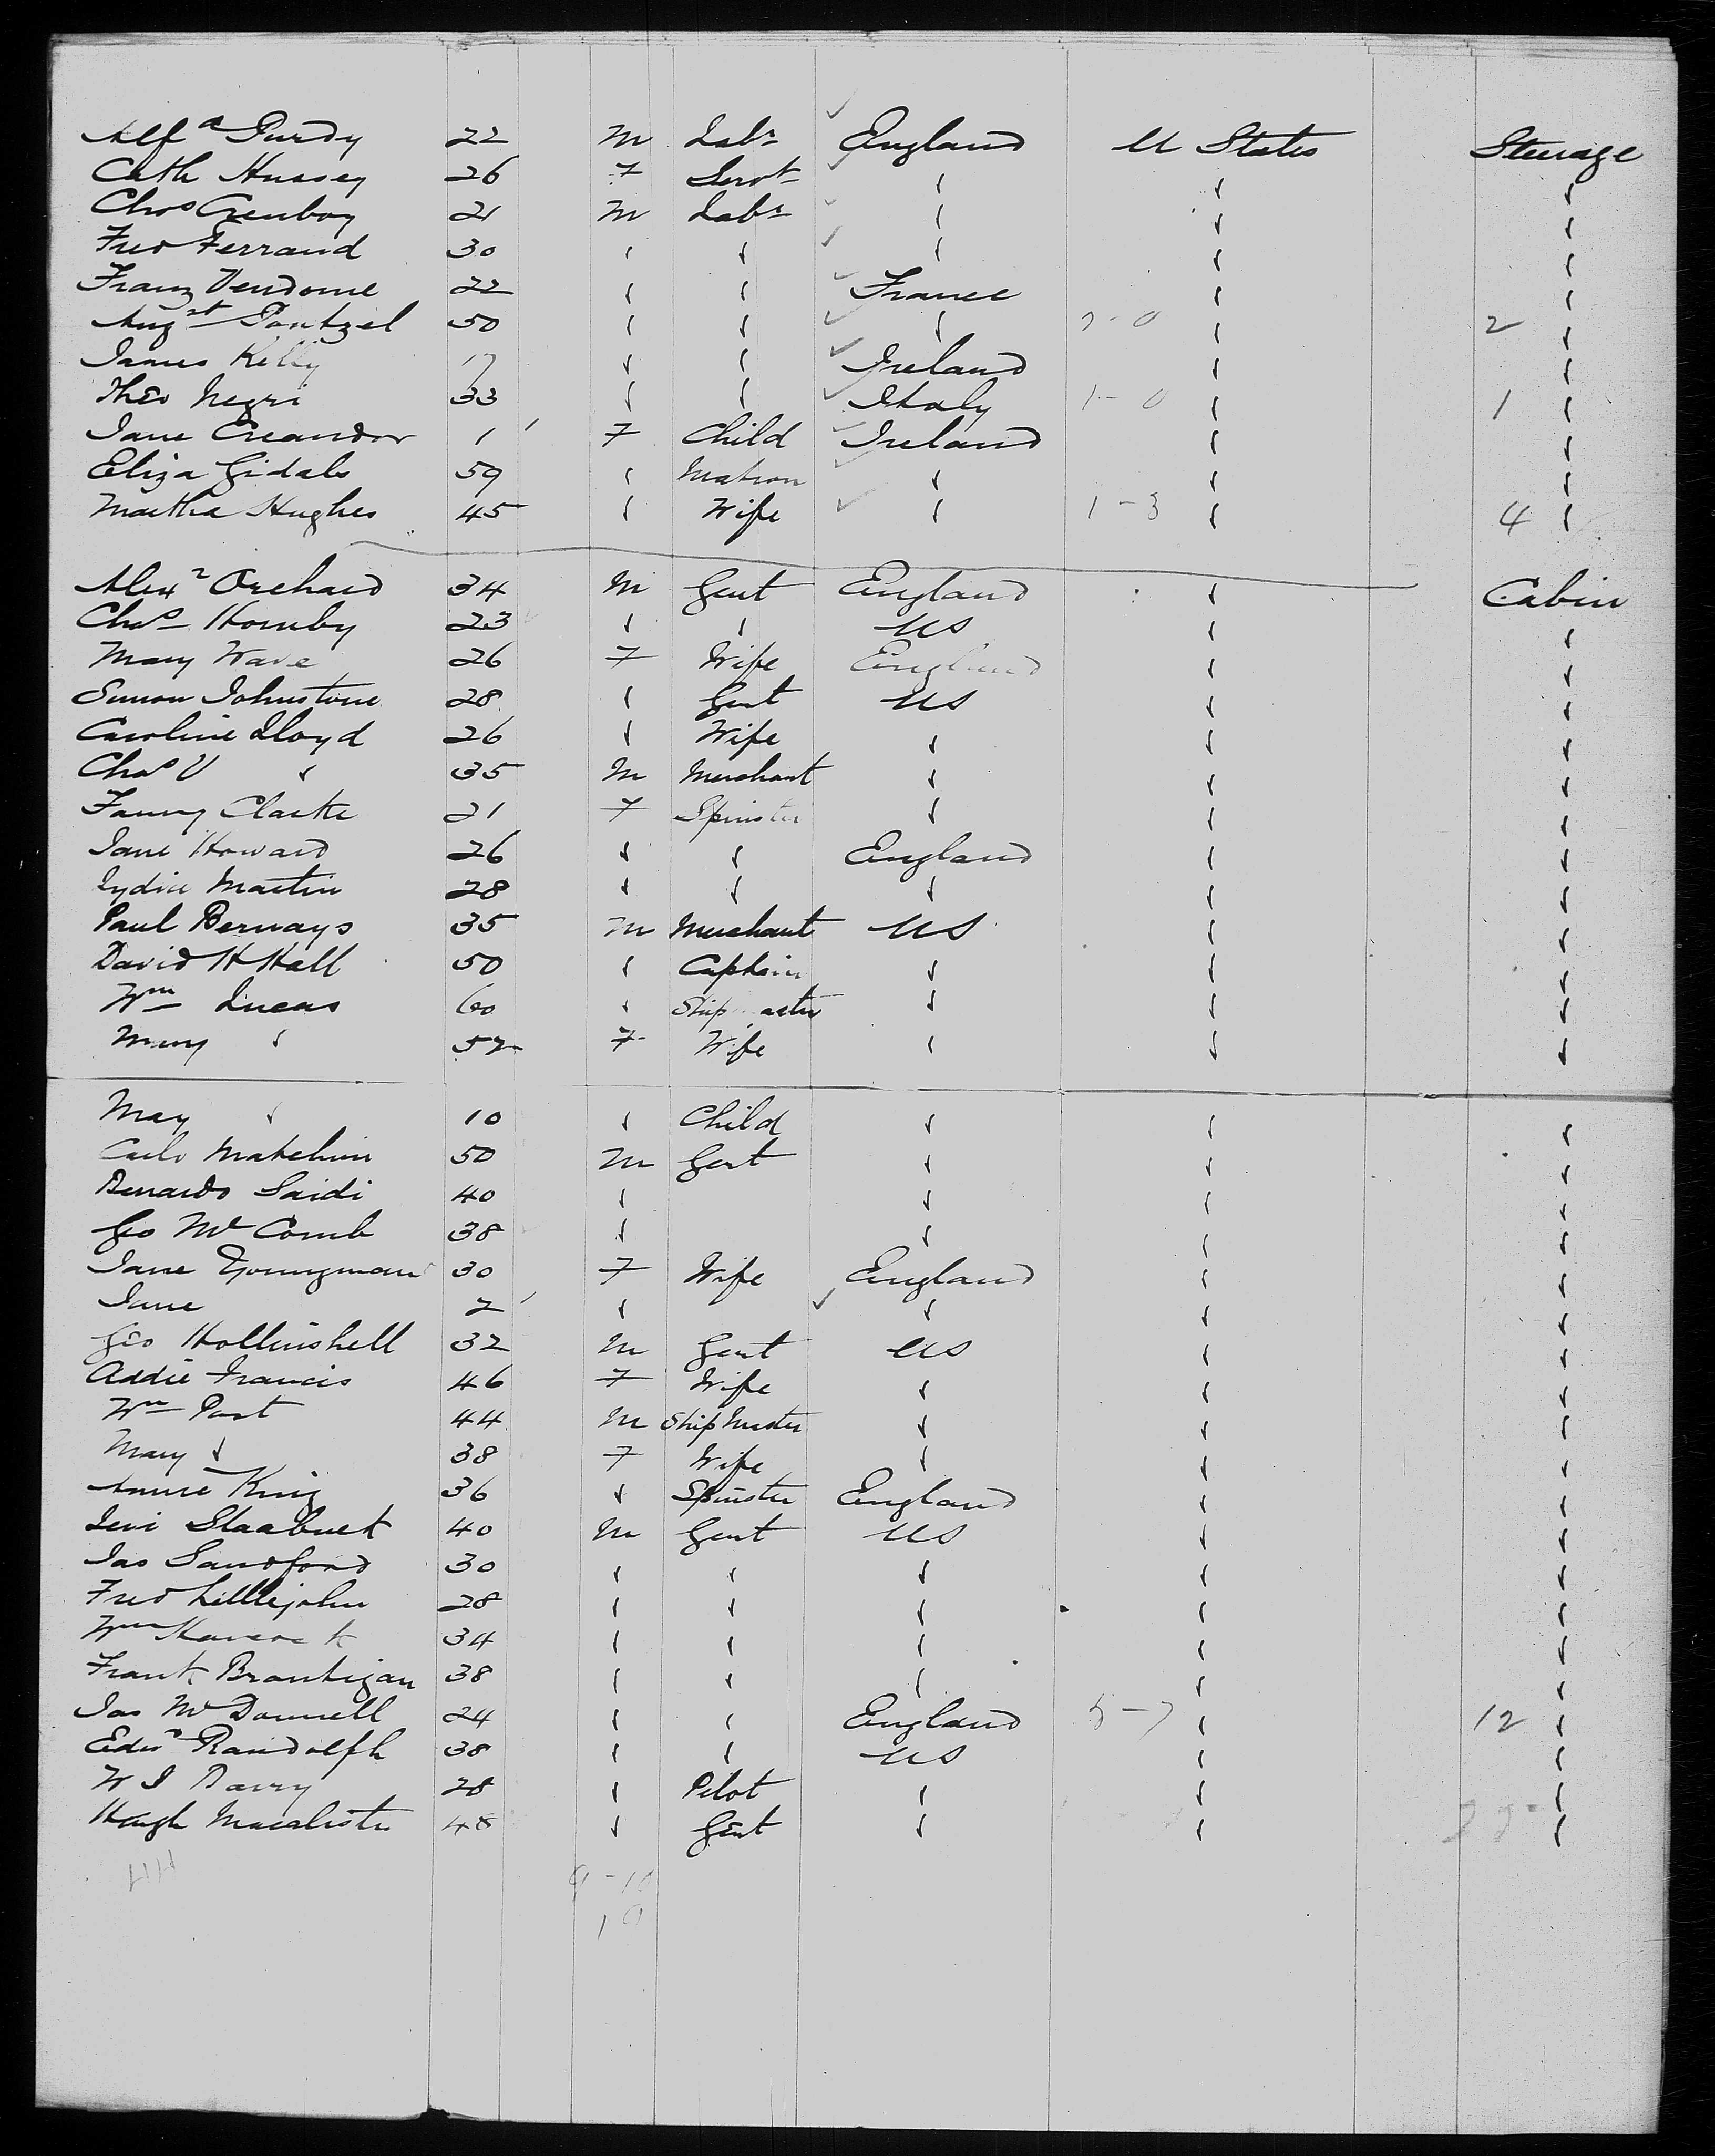 Alfd Purdy 22 M Labr England U States Steerage
Cath Hussey 26 F Servt " " "
Chas 21 M Labr " " "
Fred Ferrand 30 " " " " "
Franz Vendome 22 " " France " "
Augst Pantzel 50 " " " " 2 "
James Kelly 17 " " Ireland " "
Theo Negri 33 " " Italy 1-0 " 1 "
Jane 1 F Child Ireland " "
Eliza 59 " Matron " " "
Martha Hughes 45 " Wife " 1-3 " 4 "
Alexr Orchard 34 M Gent England " Cabin
Chas Hornby 23 " " US " "
Mary Wave 26 F Wife England " "
Simon Johnstone 28 " Gent US " "
Caroline Lloyd 26 " Wife " " "
Chas V " 35 M Merchant " " "
Fanny Clarke 21 F Spinster " " "
Jane Howard 26 " " England " "
Lydia Martin 28 " " " " "
Paul Bernays 35 M Merchant US " "
David H Hall 50 " Captain " " "
Wm Lucas 60 " Ship master " " "
Mary " 52 F Wife " " "
May " 10 " Child " " "
Carlo 50 M Gent " " "
Benardo Saidi 40 " " " "
Geo McComb 38 " " " "
Jane Youngman 30 F Wife England " "
Jane 2 " " " "
Geo Hollinshell 32 M Gent US " "
Addie Francis 46 F Wife " " "
Wm Post 44 M Ship Master " " "
Mary " 38 F Wife " " "
Annie King 36 " Spinster England " "
Levi 40 M Gent US " "
Jas Sandford 30 " " " " "
Fred Littlejohn 28 " " " " "
Wm 34 " " " " "
Frank Brantigan 38 " " " " "
Jas McDonnell 24 " " England 5-7 " 12 "
Edwd Randolph 38 " " US " "
W J Barry 28 " Pilot " " "
Hugh Macalister 48 " Gent " " "
9-10
19